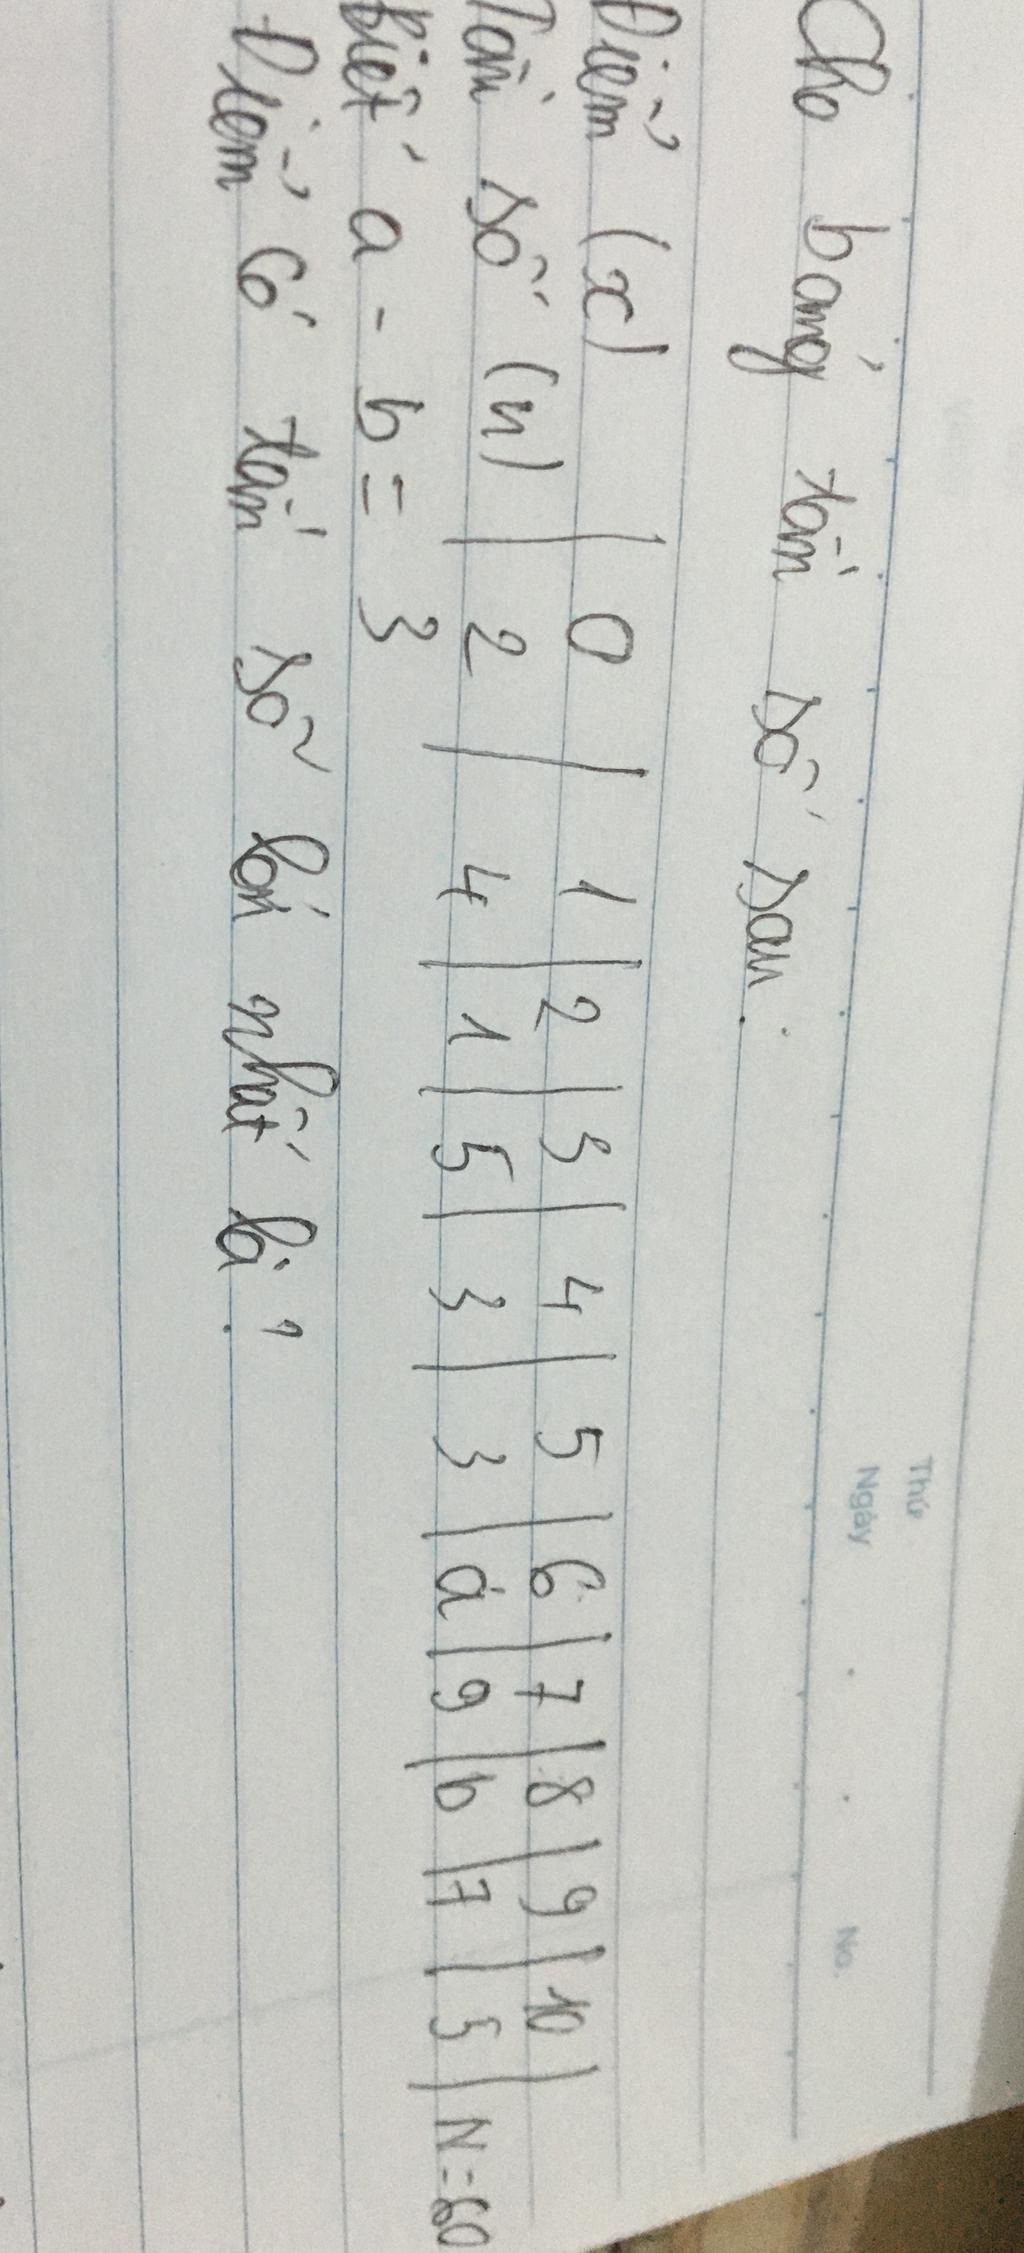 Thứ
Ngày
No.
Cho bảng tần số sau:
Điểm (x) | 0 | 1 | 2 | 3 | 4 | 5 | 6 | 7 | 8 | 9 | 10 |
Tần số (n) | 2 | 4 | 1 | 5 | 3 | 3 | a | 9 | b | 7 | 5 | N = 60
Biết a - b = 3
Điểm có tần số lớn nhất là: